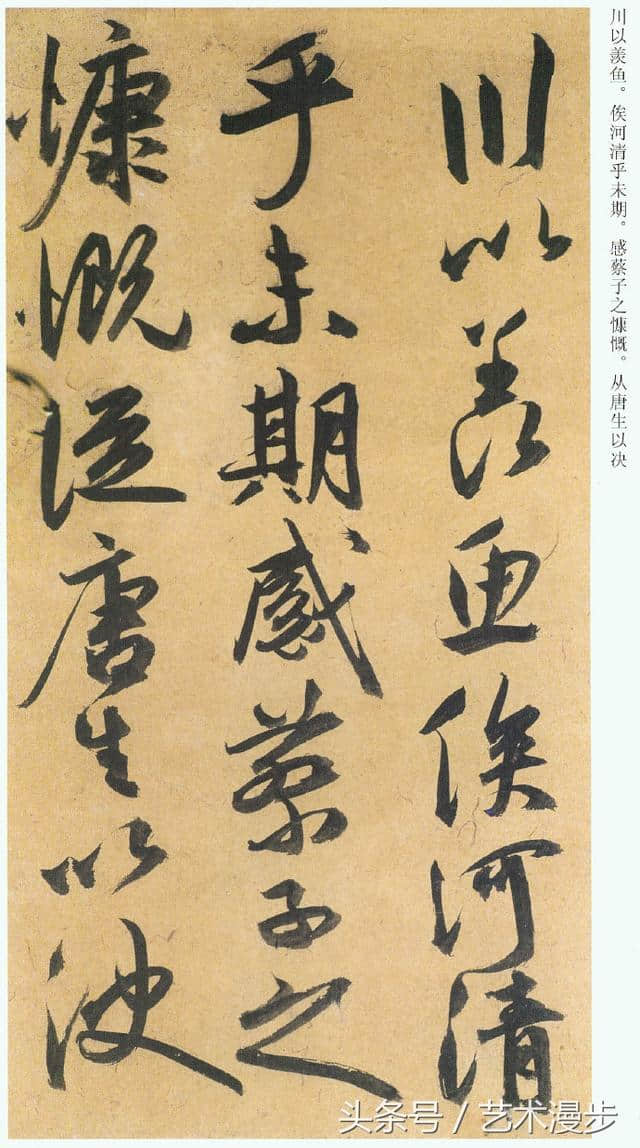 川以羡鱼俟河清
乎未期感蔡子之
慷慨从唐生以决
川以羡鱼。俟河清乎未期。感蔡子之慷慨。从唐生以决
头条号 / 艺术漫步